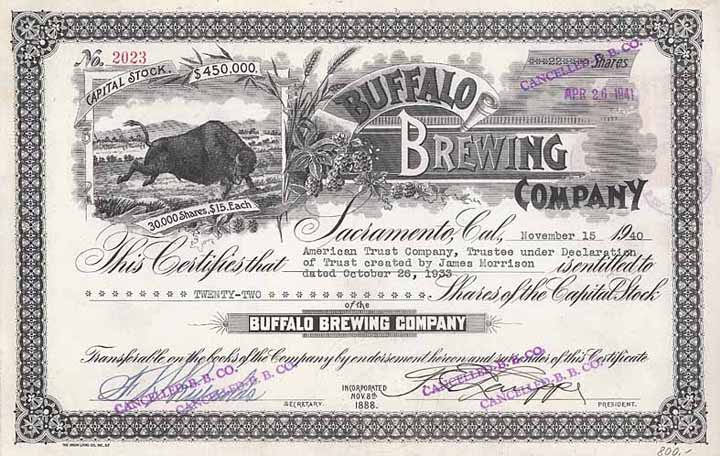 No. 2023
CAPITAL STOCK. $450,000.
30,000 Shares, $15. Each
22 Shares
CANCELLED B. B. CO.
APR 26 1941
BUFFALO
BREWING
COMPANY
Sacramento, Cal., November 15 1940
This Certifies that American Trust Company, Trustee under Declaration
of Trust created by James Morrison is entitled to
dated October 26, 1933
TWENTY-TWO Shares of the Capital Stock
of the
BUFFALO BREWING COMPANY
Transferable on the books of the Company by endorsement hereon and surrender of this Certificate
CANCELLED B. B. CO.
CANCELLED B. B. CO.
CANCELLED B. B. CO.
INCORPORATED
NOV. 8th
1888.
SECRETARY.
PRESIDENT.
800,-